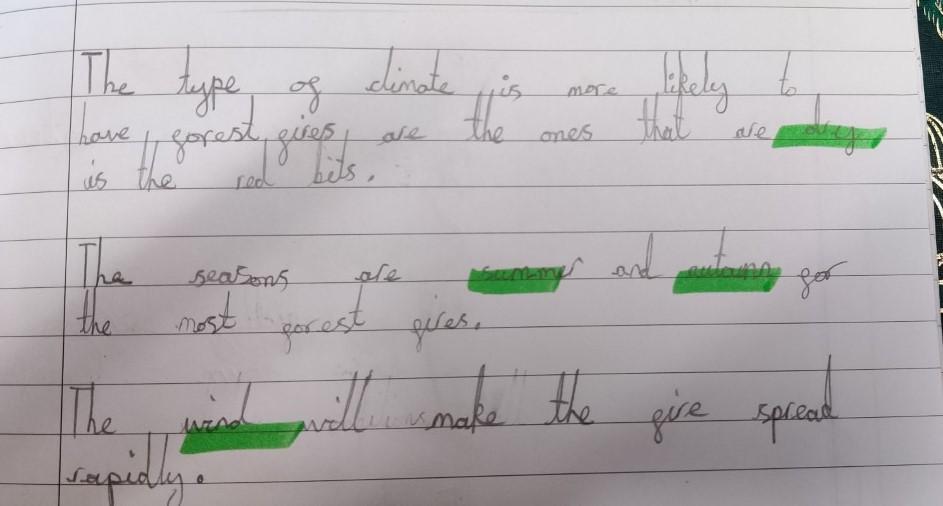 The type of climate is more likely to
have forest fires are the ones that are dry
is the red bits.
The seasons are summer and autumn for
the most forest fires.
The wind will make the fire spread
rapidly.